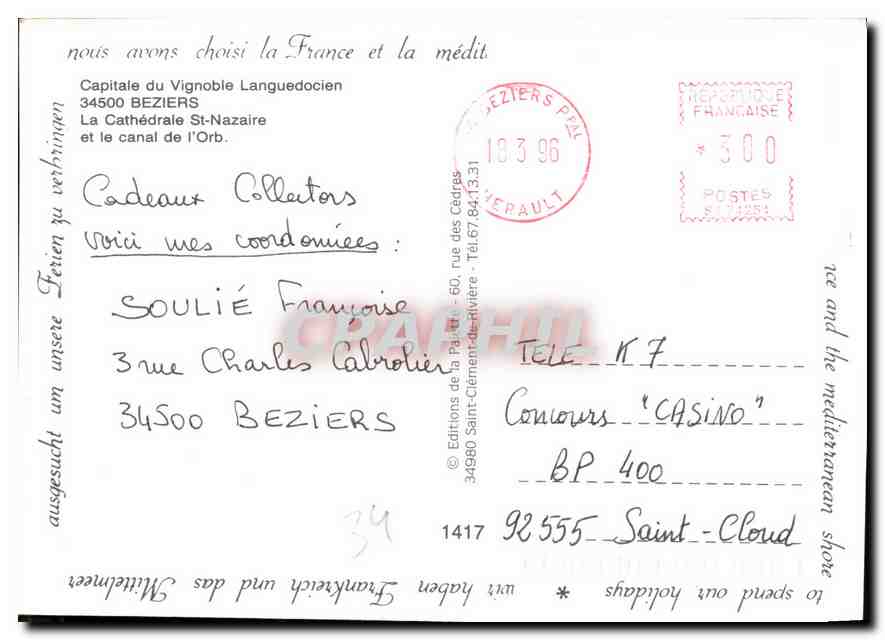 nous avons choisi la France et la médit
Capitale du Vignoble Languedocien
34500 BEZIERS
La Cathédrale St-Nazaire
et le canal de l'Orb.
BEZIERS PPAL
18.3.96
HERAULT
REPUBLIQUE
FRANCAISE
* 300
POSTES
Cadeaux Collectors
voici mes coordonnées :
SOULIÉ Françoise
3 rue Charles Cabrolier
34500 BEZIERS
© Editions de la Palette - 60, rue des Cèdres
34980 Saint-Clément-de-Rivière - Tél. 67.84.13.31
CPAPHIL
TELE K7
Concours "CASINO"
BP 400
1417 92555 Saint-Cloud
34
ice and the mediterranean shore
to spend our holidays * wir haben Frankreich und das Mittelmeer
ausgesucht um unsere Ferien zu verbringen